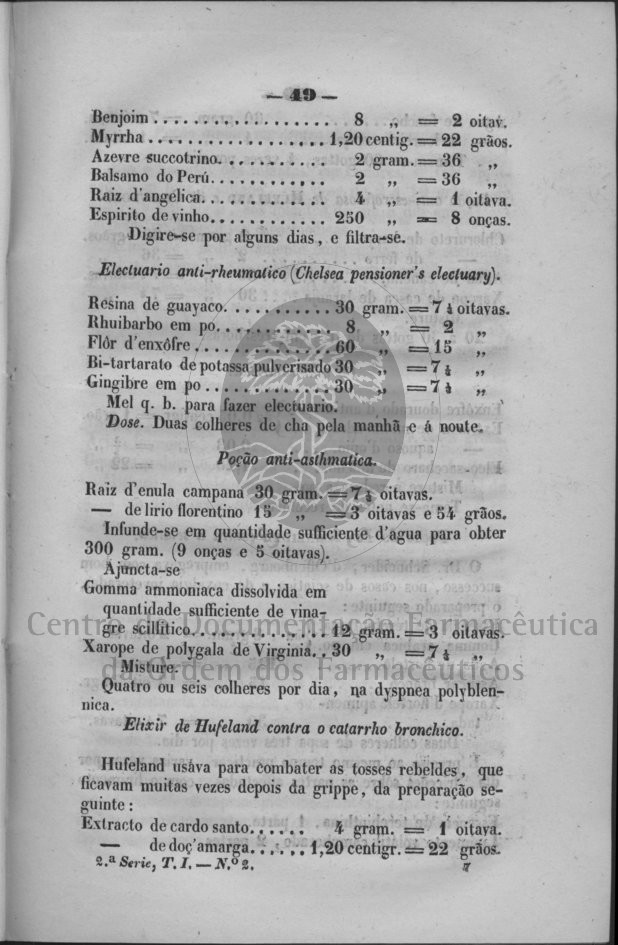 — 49 —
Benjoim . . . . . . . . . . . . . . . . . . 8 „ = 2 oitav.
Myrrha . . . . . . . . . . . . . . . . . . 1,20 centig. = 22 grãos.
Azevre succotrino. . . . . . . . . . . 2 gram. = 36 „
Balsamo do Perú. . . . . . . . . . . . 2 „ = 36 „
Raiz d'angelica. . . . . . . . . . . . . 4 „ = 1 oitava.
Espirito de vinho. . . . . . . . . . . . 250 „ = 8 onças.
Digire-se por alguns dias, e filtra-se.
Electuario anti-rheumatico (Chelsea pensioner's electuary).
Resina de guayaco. . . . . . . . . . . 30 gram. = 7 ½ oitavas.
Rhuibarbo em po. . . . . . . . . . . . 8 „ = 2 „
Flôr d'enxôfre . . . . . . . . . . . . . . 60 „ = 15 „
Bi-tartarato de potassa pulverisado 30 „ = 7 ½ „
Gingibre em po . . . . . . . . . . . . . 30 „ = 7 ½ „
Mel q. b. para fazer electuario.
Dose. Duas colheres de cha pela manhã e á noute.
Poção anti-asthmatica.
Raiz d'enula campana 30 gram. = 7 ½ oitavas.
— de lirio florentino 15 „ = 3 oitavas e 54 grãos.
Infunde-se em quantidade sufficiente d'agua para obter
300 gram. (9 onças e 5 oitavas).
Ajuncta-se
Gomma ammoniaca dissolvida em
quantidade sufficiente de vina-
gre scillitico. . . . . . . . . . . . . . 12 gram. = 3 oitavas.
Xarope de polygala de Virginia. . 30 „ = 7 ½ „
Misture.
Quatro ou seis colheres por dia, na dyspnea polyblen-
nica.
Elixir de Hufeland contra o catarrho bronchico.
Hufeland usáva para combater as tosses rebeldes, que
ficavam muitas vezes depois da grippe, da preparação se-
guinte :
Extracto de cardo santo. . . . . . 4 gram. = 1 oitava.
— de doç'amarga. . . . . . 1,20 centigr. = 22 grãos.
2.ª Serie, T. I. — N.º 2. 7
Centro de Documentação Farmacêutica
da Ordem dos Farmacêuticos